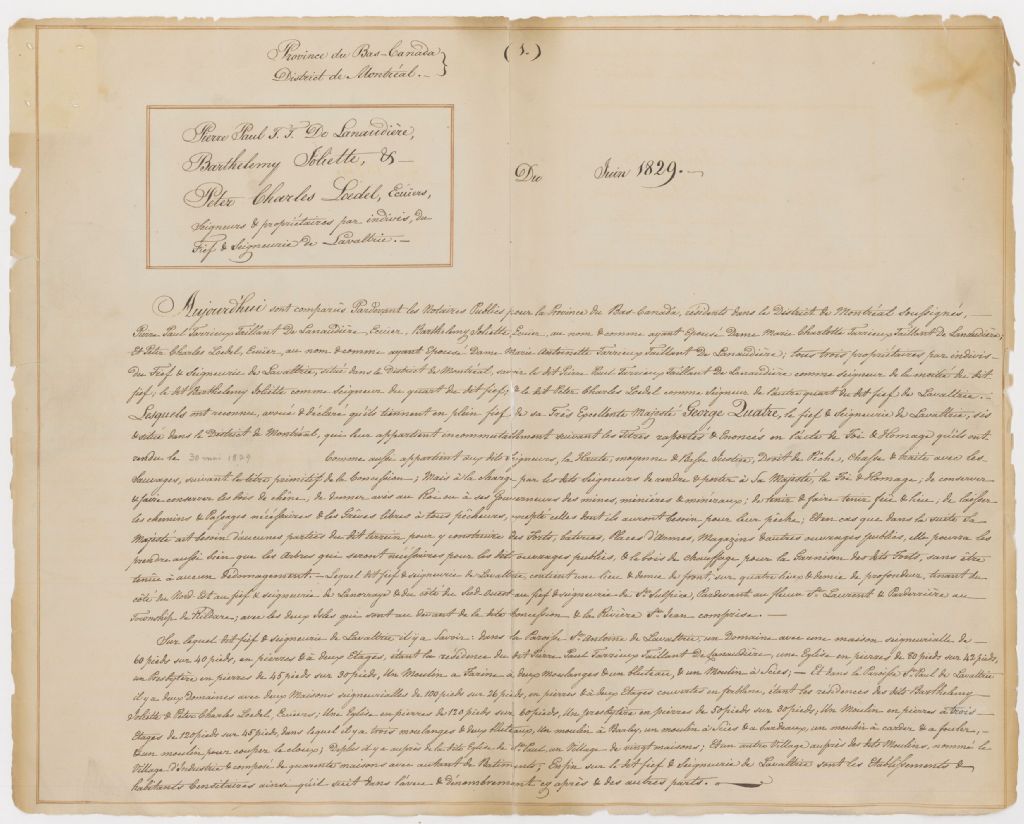 Province du Bas-Canada
District de Montréal.
(1.)
Pierre Paul T. T. De Lanaudière,
Barthelemy Joliette, &
Peter Charles Loedel, Ecuiers,
Seigneurs & propriétaires par indivis, du
Fief & Seigneurie de Lavaltrie.
Du Juin 1829.
Aujourd'hui sont comparus Pardevant les Notaires Publics pour la Province du Bas Canada, résidents dans le District de Montréal Soussignés,
Pierre Paul Tarrieux Taillant De Lanaudière, Ecuier, Barthelemy Joliette, Ecuier, au nom & comme ayant Epousé Dame Marie Charlotte Tarrieux Taillant De Lanaudière;
Et Peter Charles Loedel, Ecuier, au nom & comme ayant Epousé Dame Marie Antoinette Tarrieux Taillant De Lanaudière; tous trois propriétaires par indivis
du Fief & Seigneurie de Lavaltrie, sitié dans le District de Montréal, savoir le dit Pierre Paul Tarrieux Taillant De Lanaudière comme Seigneur de la moitié du dit
fief, le dit Barthelemy Joliette comme Seigneur du quart du dit fief, & le dit Peter Charles Loedel comme Seigneur de l'autre quart du dit fief de Lavaltrie.
Lesquels ont reconnu, avoué & déclaré qu'ils tiennent en plein fief de sa Très Excellente Majesté George Quatre, le fief & Seigneurie de Lavaltrie, sis
& sitié dans le District de Montréal, qui leur appartient suivant les Titres raportés & Enoncés en l'acte de Foi & Homage qu'ils ont
rendu le 30 mai 1829 Comme aussi appartient aux dits Seigneurs, la Haute, moyenne & Basse Justice, Droit de Pêche, Chasse & traite avec les
Sauvages, suivant le titre primitif de la Concession; Mais à la charge par les dits Seigneurs de rendre & porter à Sa Majesté, la Foi & Homage; de conserver
& faire conserver les bois de chêne, de donner avis au Roi ou à ses Gouverneurs des mines, minières & minéraux; de tenir & faire tenir feu & lieu; de laisser
les chemins & Passages nécessaires & les Grèves libres à tous pêcheurs, excepté celles dont ils auront besoin pour leur pêche; Et en cas que dans la suite Sa
Majesté ait besoin d'aucunes parties du dit terrein pour y construire des Forts, batteries, Places d'Armes, Magazins & autres ouvrages publics, elle pourra les
prendre aussi bien que les Arbres qui seront nécessaires pour les dits ouvrages publics, & le bois de chauffage pour la Garnison des dits Forts, sans être
tenue à aucun dédomagement. Lequel dit fief & seigneurie de Lavaltrie contient une lieue & demie de front, sur quatre lieues & demie de profondeur, tenant du
côté du Nord Est au fief & seigneurie de Lanoraye & du côté du Sud Ouest au fief & seigneurie de St. Sulpice, Pardevant au fleuve St. Laurent & Parderrière au
Township de Kildare, avec les deux Isles qui sont au devant de la dite Concession & la Rivière St. Jean comprise.
Sur lequel dit fief & seigneurie de Lavaltrie, il y a Savoir: dans la Paroisse St. Antoine de Lavaltrie, un Domaine avec une maison seigneuriale de
60 pieds sur 40 pieds, en pierres & à deux Etages, étant la résidence du dit Pierre Paul Tarrieux Taillant De Lanaudière, une Eglise en pierres de 80 pieds sur 42 pieds,
un Presbytère en pierres de 45 pieds sur 30 pieds, Un Moulin à Farine à deux moulanges & un bluteau, & un Moulin à Scies; Et dans la Paroisse St. Paul de Lavaltrie
il y a deux Domaines avec deux Maisons seigneuriales de 100 pieds sur 26 pieds, en pierres & à deux Etages couvertes en ferblanc, étant les résidences des dits Barthelemy
Joliette & Peter Charles Loedel, Ecuiers; Une Eglise en pierres de 120 pieds sur 60 pieds, Un presbytère en pierres de 50 pieds sur 30 pieds, Un Moulin en pierres à trois
Etages de 120 pieds sur 45 pieds, dans lequel il y a trois moulanges & deux bluteaux, Un moulin à Barley, un moulin à Scies & à bardeaux, un moulin à carder & à fouler,
& un moulin pour couper le cloux; De plus il y a auprès de la dite Eglise de St. Paul, un Village de vingt maisons; Et un autre Village auprès des dits Moulins, nommé le
Village d'Industrie & composé de quarante maisons avec autant de Batiments; Enfin sur le dit fief & Seigneurie de Lavaltrie sont les Etablissements &
habitants Censitaires ainsi qu'il suit dans l'aveu & dénombrement cy après & des autres parts.